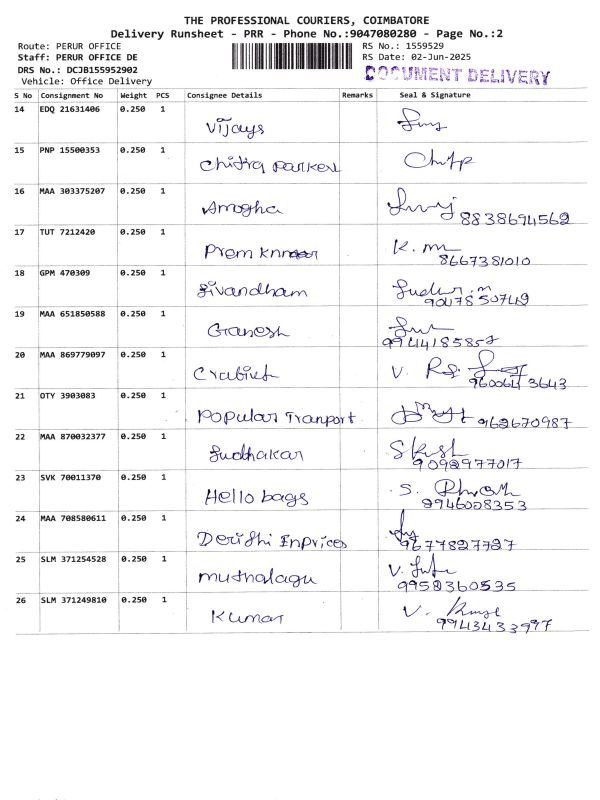 THE PROFESSIONAL COURIERS, COIMBATORE
Delivery Runsheet - PRR - Phone No.:9047080280 - Page No.:2
Route: PERUR OFFICE RS No.: 1559529
Staff: PERUR OFFICE DE RS Date: 02-Jun-2025
DRS No.: DCJB155952902 DOCUMENT DELIVERY
Vehicle: Office Delivery
S No Consignment No Weight PCS Consignee Details Remarks Seal & Signature
14 EDQ 21631406 0.250 1
Vijays
15 PNP 15500353 0.250 1
Chitra
16 MAA 303375207 0.250 1
Amogha 8838694562
17 TUT 7212420 0.250 1
Prem K. m
8667381010
18 GPM 470309 0.250 1
Sivandham
19 MAA 651850588 0.250 1
Ganesh
9944185857
20 MAA 869779097 0.250 1
V.
21 OTY 3903083 0.250 1
Popular Tranport 962670987
22 MAA 870032377 0.250 1
Sudhakar
9092977017
23 SVK 70011370 0.250 1
Hello bags S.
9946008353
24 MAA 708580611 0.250 1
9677827727
25 SLM 371254528 0.250 1
muthalagu V.
9952360535
26 SLM 371249810 0.250 1
Kumar V.
9943433997